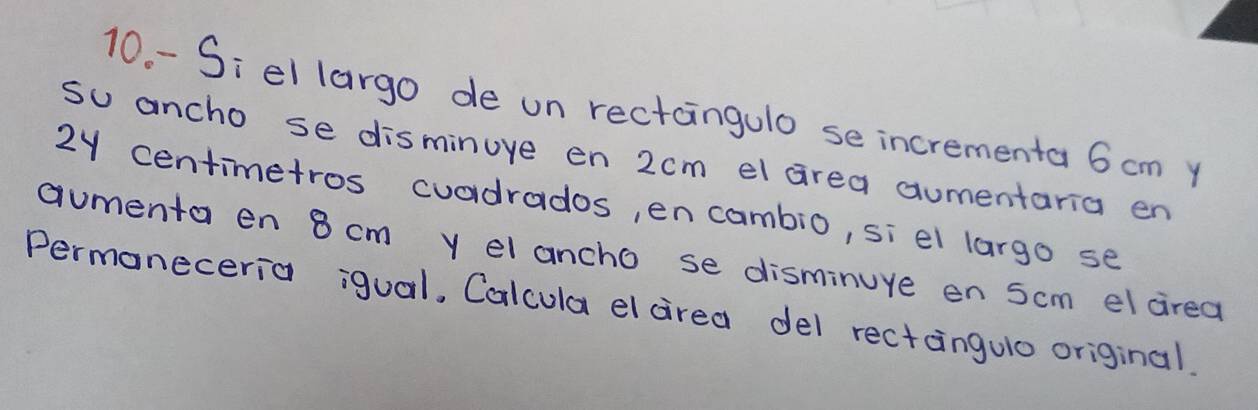 10.- Si el largo de un rectángulo se incrementa 6 cm y
su ancho se disminuye en 2cm el área aumentaría en
24 centímetros cuadrados, en cambio, si el largo se
aumenta en 8 cm y el ancho se disminuye en 5cm el área
Permanecería igual. Calcula el área del rectángulo original.